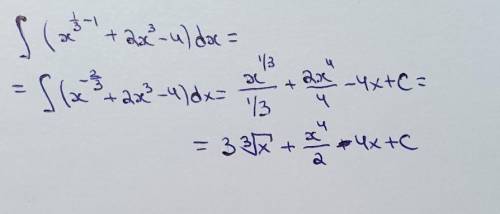 ∫ (x^{1/3 - 1} + 2x³ - 4) dx =
= ∫ (x^{-2/3} + 2x³ - 4) dx = x^{1/3} / 1/3 + 2x⁴/4 - 4x + C =
= 3∛x + x⁴/2 - 4x + C